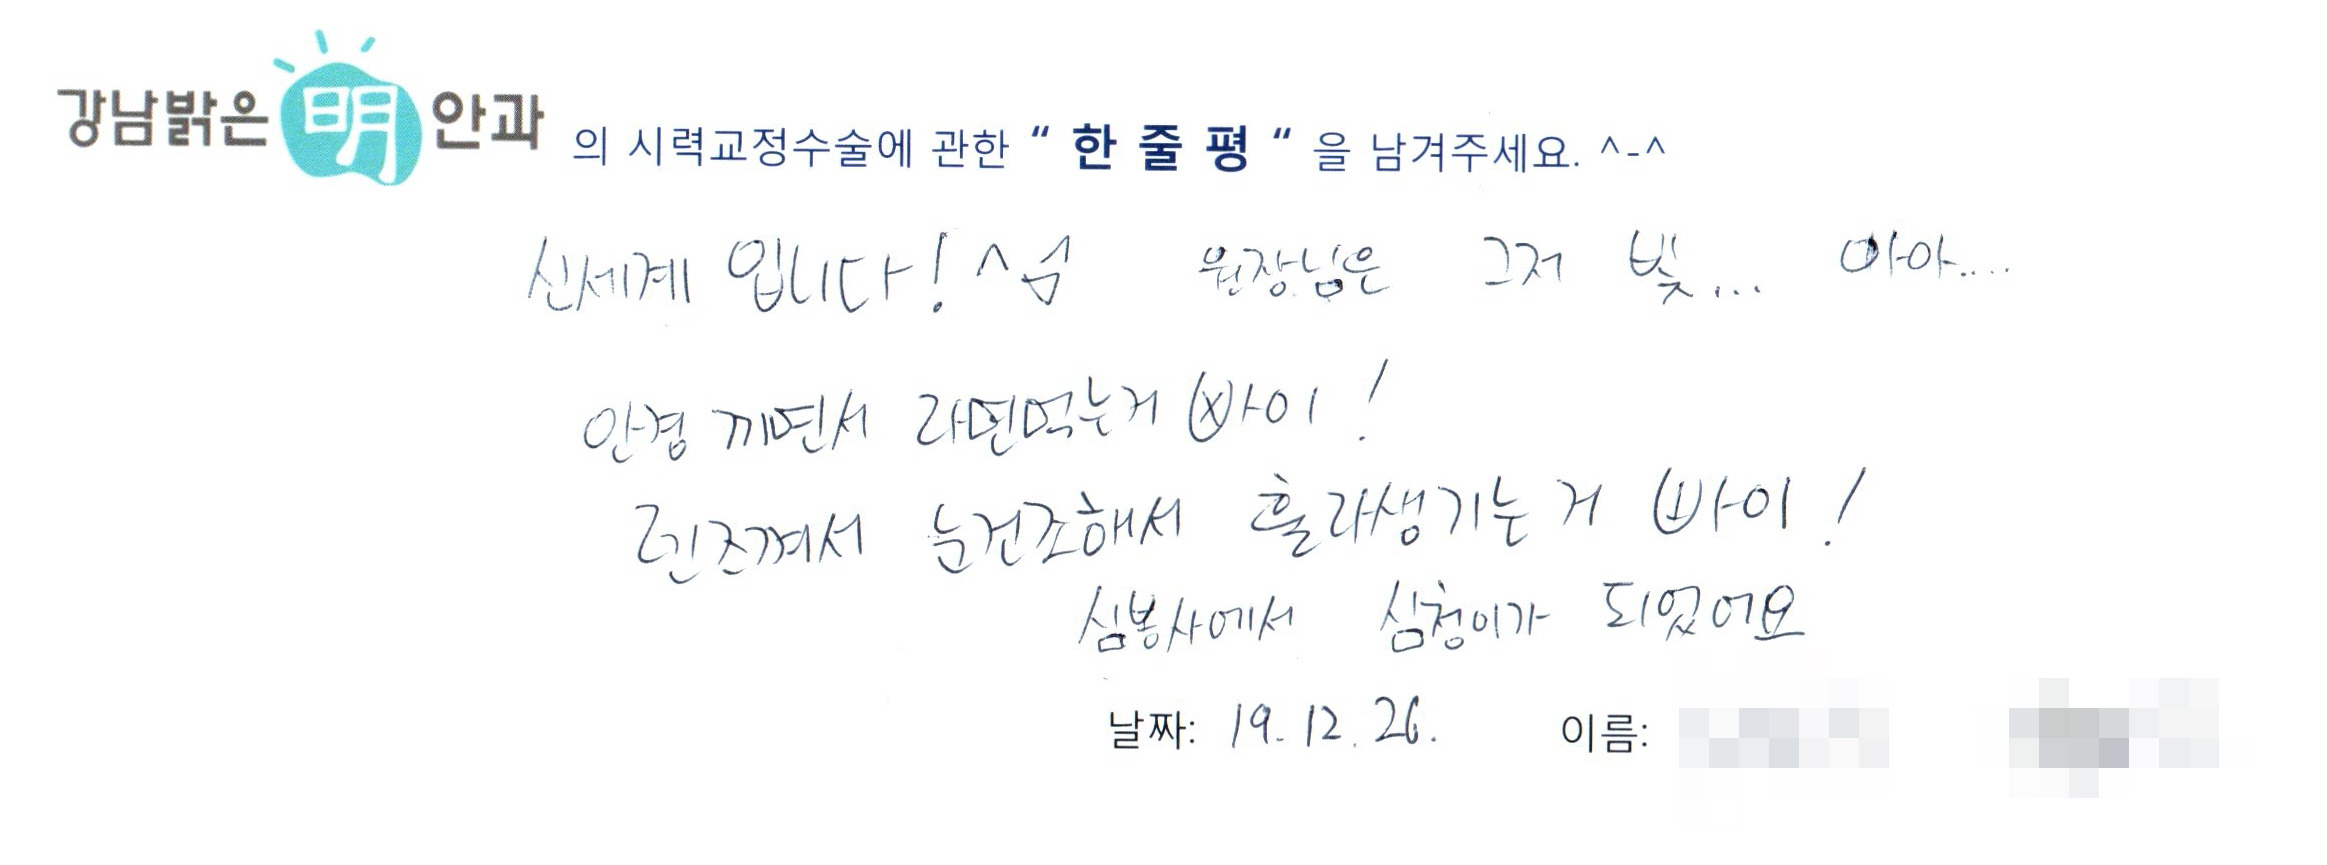 강남밝은明안과 의 시력교정수술에 관한 “ 한 줄 평 “ 을 남겨주세요. ^-^
신세계 입니다! ^ 원장님은 그저 빛... 아아....
안경 끼면서 라면먹는거 바이!
렌즈껴서 눈건조해서 훌라생기는 거 바이!
심봉사에서 심청이가 되었어요
날짜: 19. 12. 26. 이름: